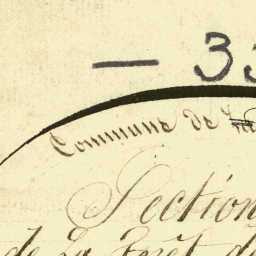 — 33
Commune de
Section
de la Forêt d